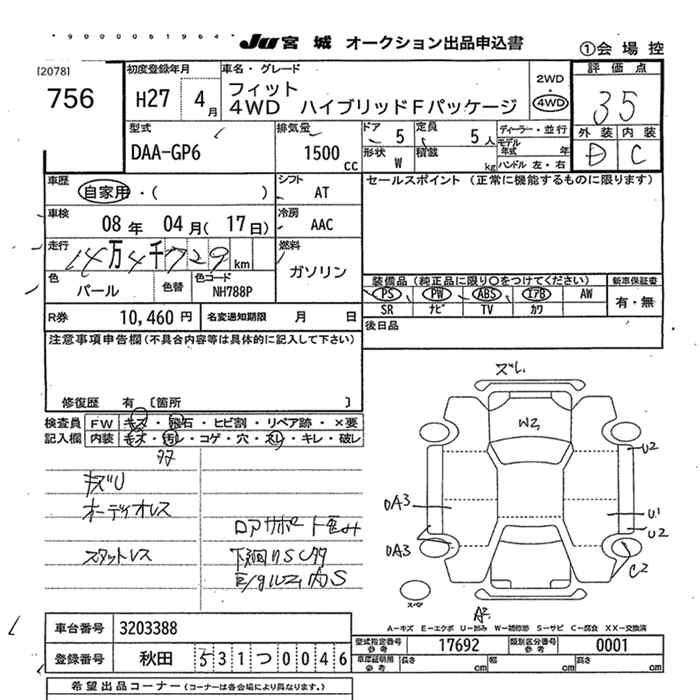 JU 宮城 オークション出品申込書
①会場控
[2078]
756
初度登録年月
H27 4月
車名・グレード
フィット
4WD ハイブリッドFパッケージ
2WD・4WD
評価点
3.5
外装 内装
D C
型式
DAA-GP6
排気量
1500 cc
ドア 5
形状 W
定員 5人
積載 kg
ディーラー・並行
モデル年式 年
ハンドル 左・右
車歴
自家用・( )
シフト AT
セールスポイント (正常に機能するものに限ります)
車検
08年 04月(17日)
冷房 AAC
走行
14万4千729km
燃料
ガソリン
色
パール
色替
色コード
NH788P
装備品 (純正品に限り○をつけてください)
新車保証書
PS PW ABS エアB AW
有・無
SR ナビ TV カワ
R券 10,460円
名変通知期限 月 日
後日品
注意事項申告欄(不具合内容等は具体的に記入して下さい)
修復歴 有 [箇所 ]
検査員記入欄
FW キズ・飛石・ヒビ割・リペア跡・×要
内装 キズ・汚レ・コゲ・穴・スレ・キレ・破レ
キズU
オーディオレス
スタットレス
ズレ
W3
U2
U1
U2
C2
UA3
UA3
スペア
A2
A-キズ E-エクボ U-凹み W-補修跡 S-サビ C-腐食 XX-交換済
車台番号 3203388
型式指定番号 参考 17692
類別区分番号 参考 0001
登録番号 秋田 531つ0046
車庫証明用 参考 長さ cm 幅 cm 高さ cm
希望出品コーナー (コーナーは各会場により異なります。)